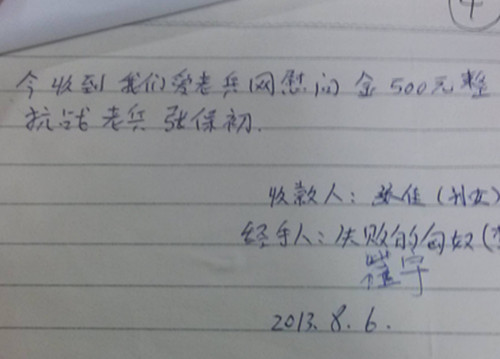 4
今收到我们爱老兵网慰问金500元整
抗战老兵张保初.
收款人: 张佳(孙女)
经手人: 失败的匈奴(
崔宇
2013. 8. 6.